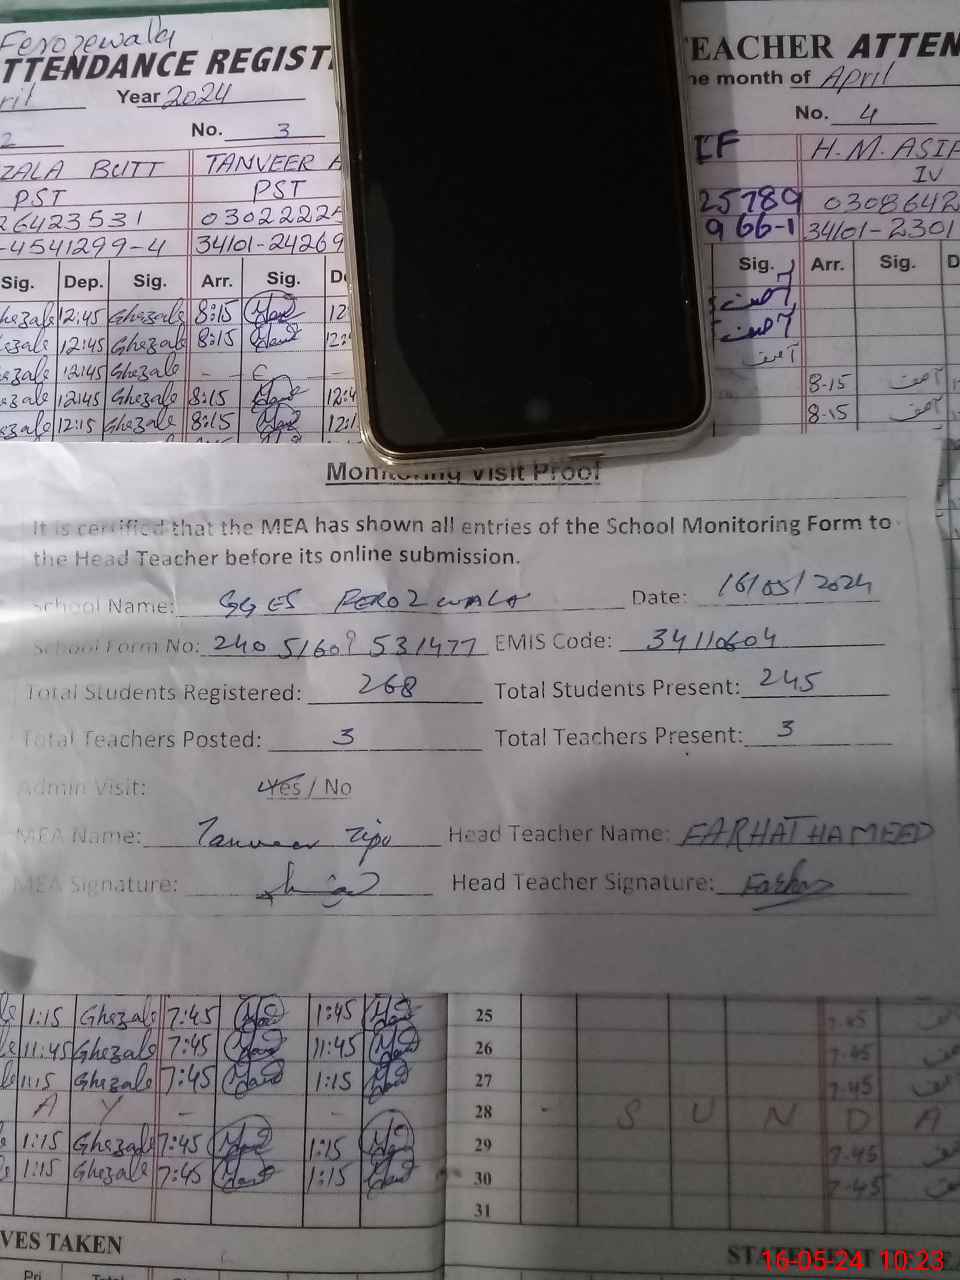 Ferozewala
ATTENDANCE REGIST
TEACHER ATTEN
Year 2024
month of April
No. 3
No. 4
BUTT
TANVEER
H. M. ASIF
PST
PST
IV
26423531
25789
0308642
-4541299-4
34101-24269
966-1
34101-2301
Sig. Dep. Sig. Arr. Sig.
Sig. Arr. Sig.
12:45 Ghezale 8:15 12
12:45 Ghezale 8:15
12:45 Ghezale
آصف
12:45 Ghezale 8:15
8-15 آصف
12:15 Ghezale 8:15
8-15 آصف
Monitoring Visit Proof
It is certified that the MEA has shown all entries of the School Monitoring Form to
the Head Teacher before its online submission.
School Name: GGES FEROZWALA Date: 16/05/2024
School Form No: 240 51609 531477 EMIS Code: 34110604
Total Students Registered: 268 Total Students Present: 245
Total Teachers Posted: 3 Total Teachers Present: 3
Admin Visit: Yes / No
MEA Name: Tanveer Tipu Head Teacher Name: FARHAT HAMEED
MEA Signature: Head Teacher Signature: Farhat
1:15 Ghezale 7:45 1:45 25 7.45
11:45 Ghezale 7:45 11:45 26 7.45
Ghezale 7:45 1:15 27 7.45
A Y - - 28 - S U N D A
1:15 Ghezale 7:45 1:15 29 7.45
1:15 Ghezale 7:45 1:15 30 7.45
31
VES TAKEN
16-05-24 10:23